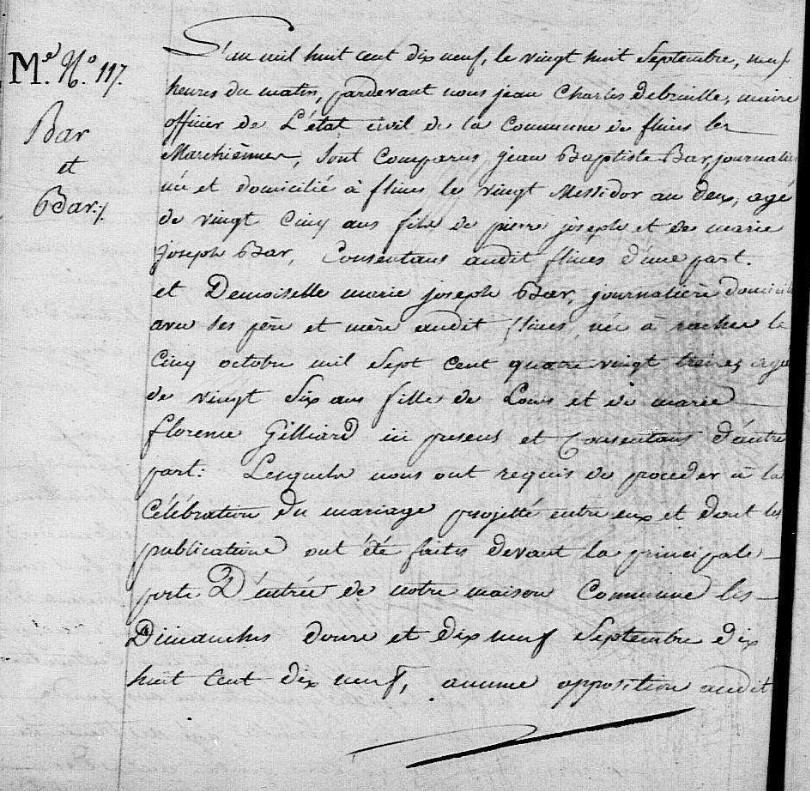 Me. No. 117.
Bar
et
Bar./.
L'an mil huit cent dix neuf, le vingt huit Septembre, neuf
heures du matin, pardevant nous jean Charles debruille, maire
officier de L'état civil de la Commune de flines lez
Marchiennes, Sont Comparus jean Baptiste Bar journalie
né et domicilié à flines le vingt Messidor an deux, agé
de vingt Cinq ans fils de pierre joseph et de marie
joseph Bar, Consentans audit flines d'une part.
et Demoiselle marie joseph Bar, journalière domicili
avec Ses père et mère audit flines, née à raches le
Cinq octobre mil Sept Cent quatre vingt treize, agée
de vingt Six ans fille de Louis et de marie
florence Gilliard ici presens et Consentans d'autre
part: Lesquels nous ont requis de proceder à la
Célébration du mariage projetté entre eux et dont les
publications ont été faites devant la principale
porte D'entrée de notre maison Commune les
Dimanches douze et dix neuf Septembre dix
huit Cent dix neuf, aucune opposition audit